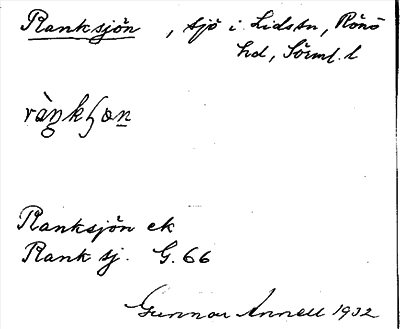 Ranksjön , sjö i Lidstn, Rönö
hd, Sörml. l
Ranksjön ek
Rank sj. G. 66
Gunnar Annell 1932